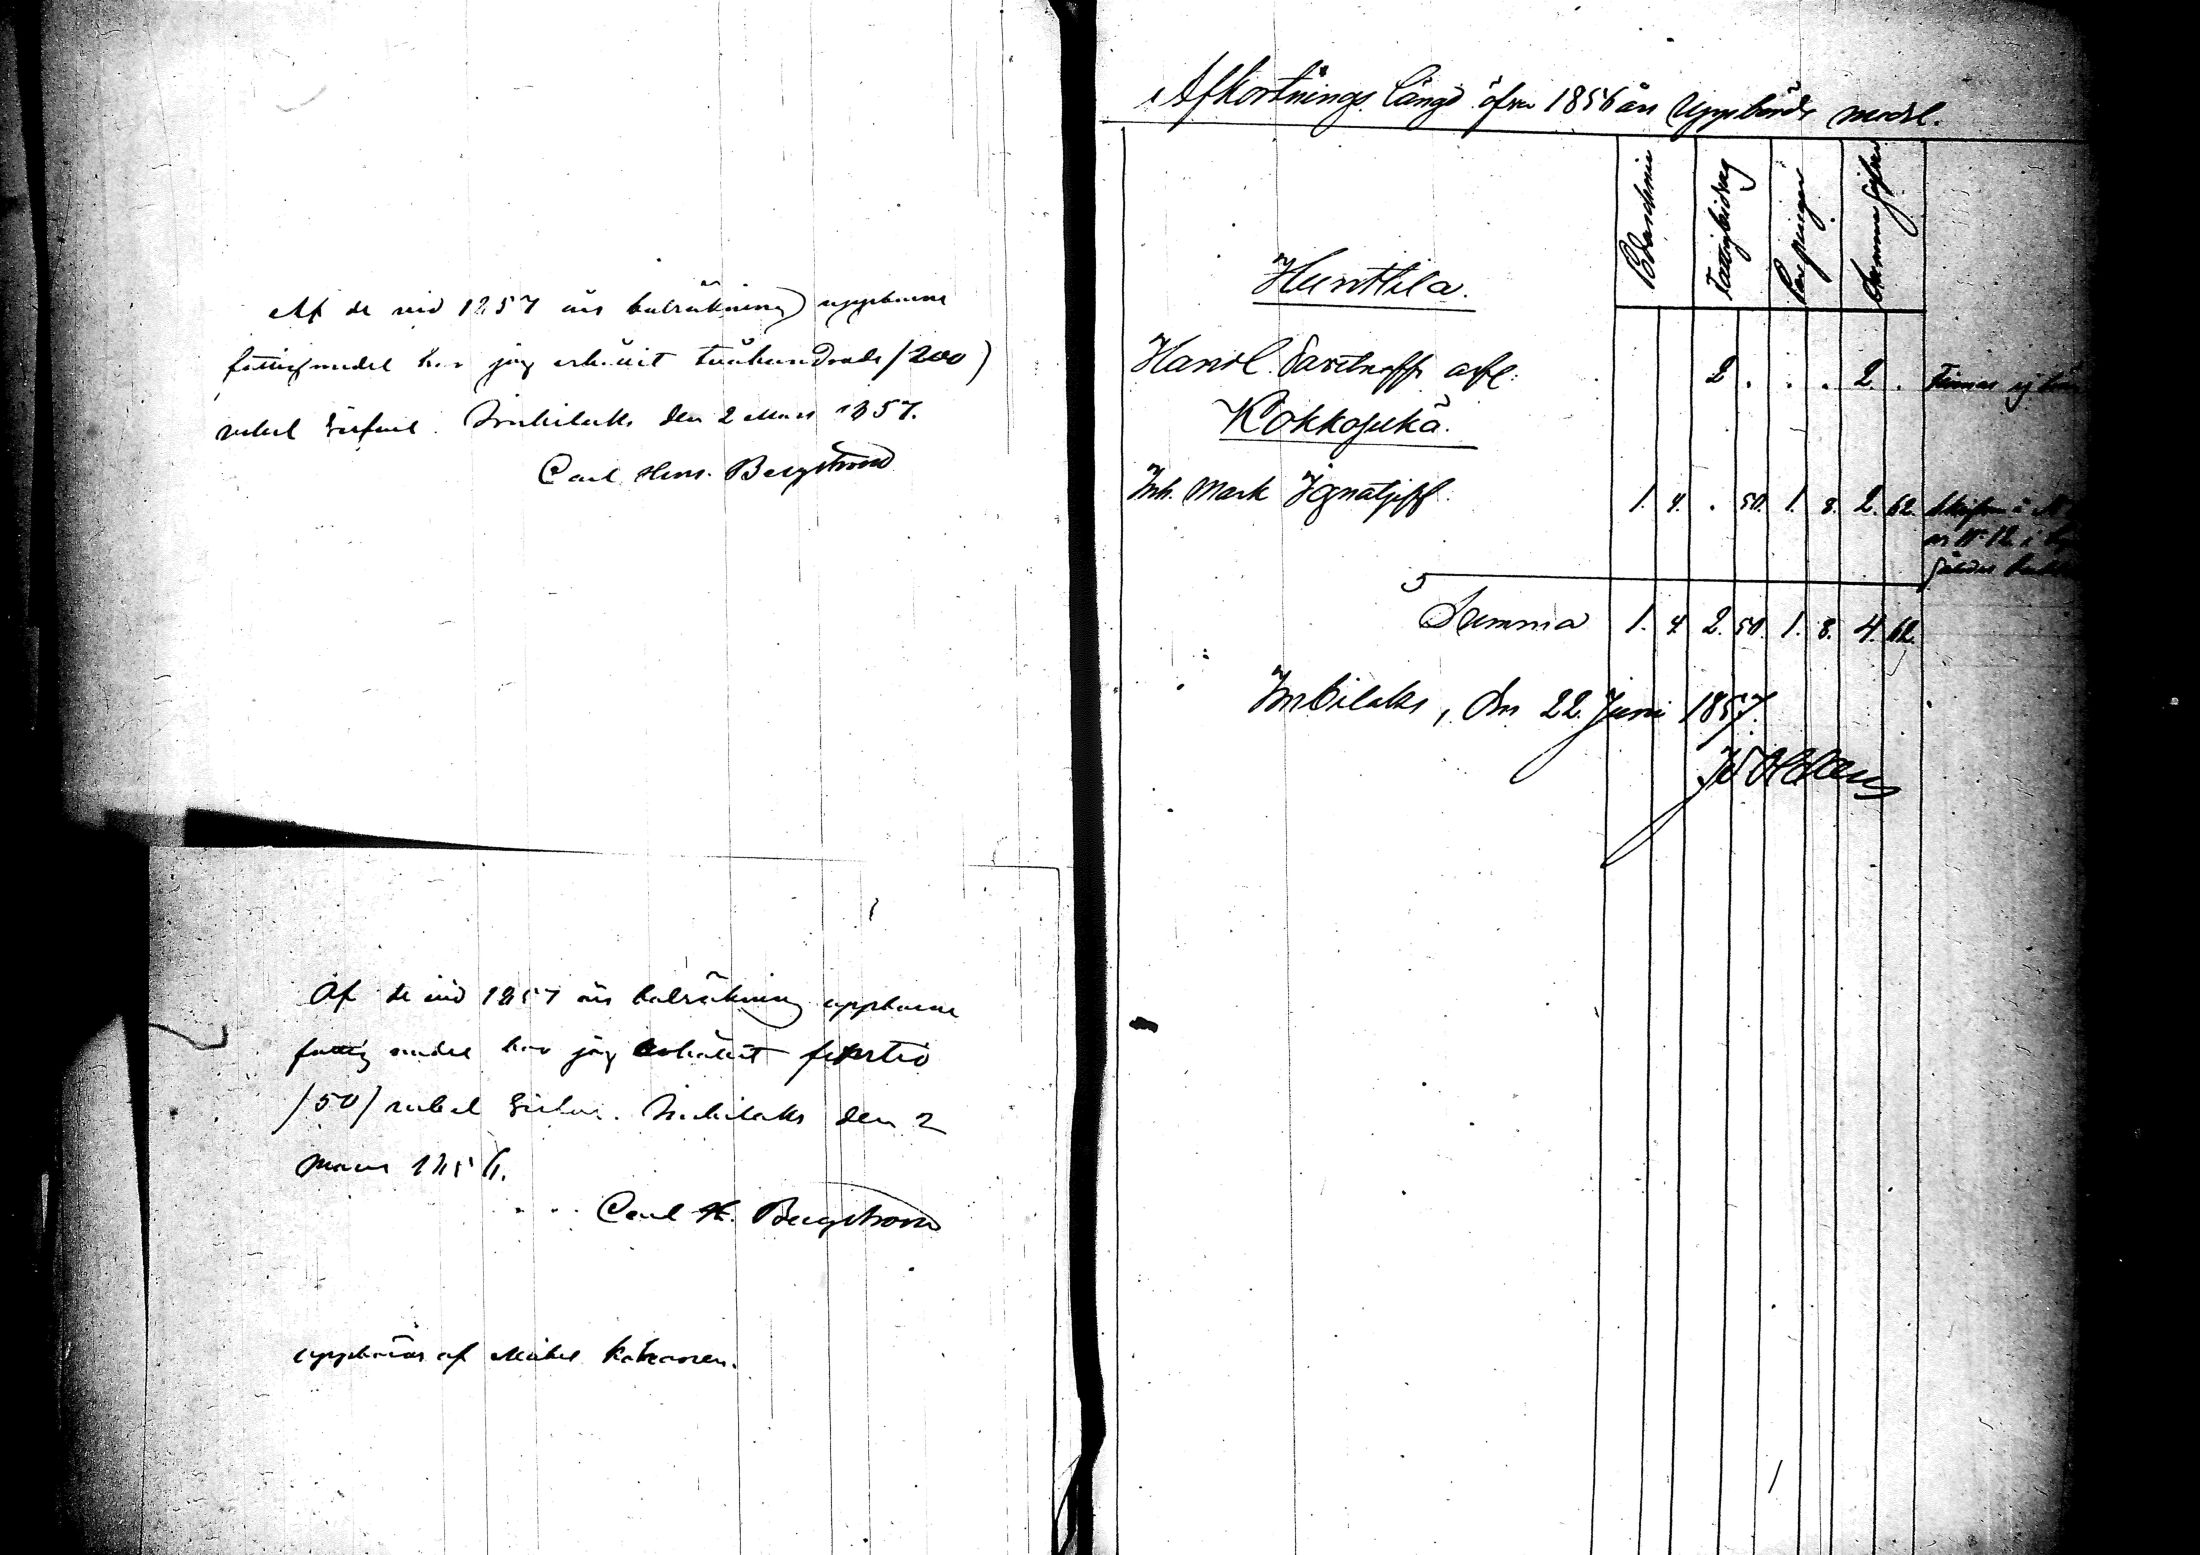 Af de vid 1857 års balräkning uppburne
fattigmedel har jag erhållit tvåhundrade /200/
rubel Silfver. Imbilaks den 2 Mars 1857.
Carl Henr. Bergström
Af de vid 1857 års balräkning uppburne
fattig medel har jag erhållit femtio
/50/ rubel Silfver. Imbilaks den 2
Mars 1857.
Carl H. Bergström
uppbäres af Mickel
Afkortnings Längd öfver 1856 års Uppbörds medel.
Fattigbidrag
Penningar
Summa Silfver
Hunttila.
Handl. arfv. 2 . . . 2 . Finnes ej
Kokkojukä.
Inh. Mark Ignatjeff. 1. 4. . 50. 1. 8. 2. 62.
Summa 1. 4. 2. 50. 1. 8. 4. 62.
Imbilaks, den 22 Juni 1857.